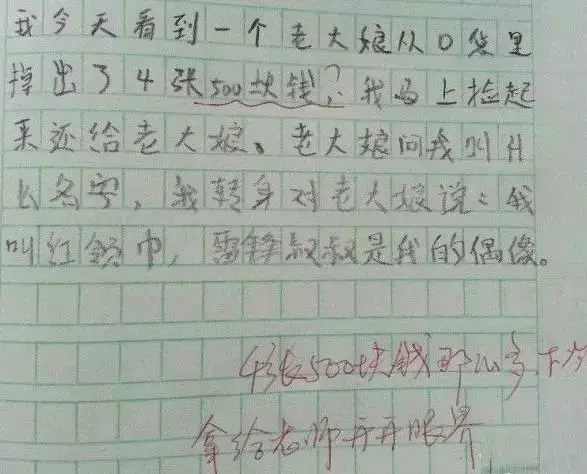 我今天看到一个老大娘从口袋里
掉出了4张500块钱?我马上捡起
来还给老大娘、老大娘问我叫什
么名字,我转身对老大娘说:我
叫红领巾,雷锋叔叔是我的偶像。
4张500块钱那么多下次
拿给老师开开眼界